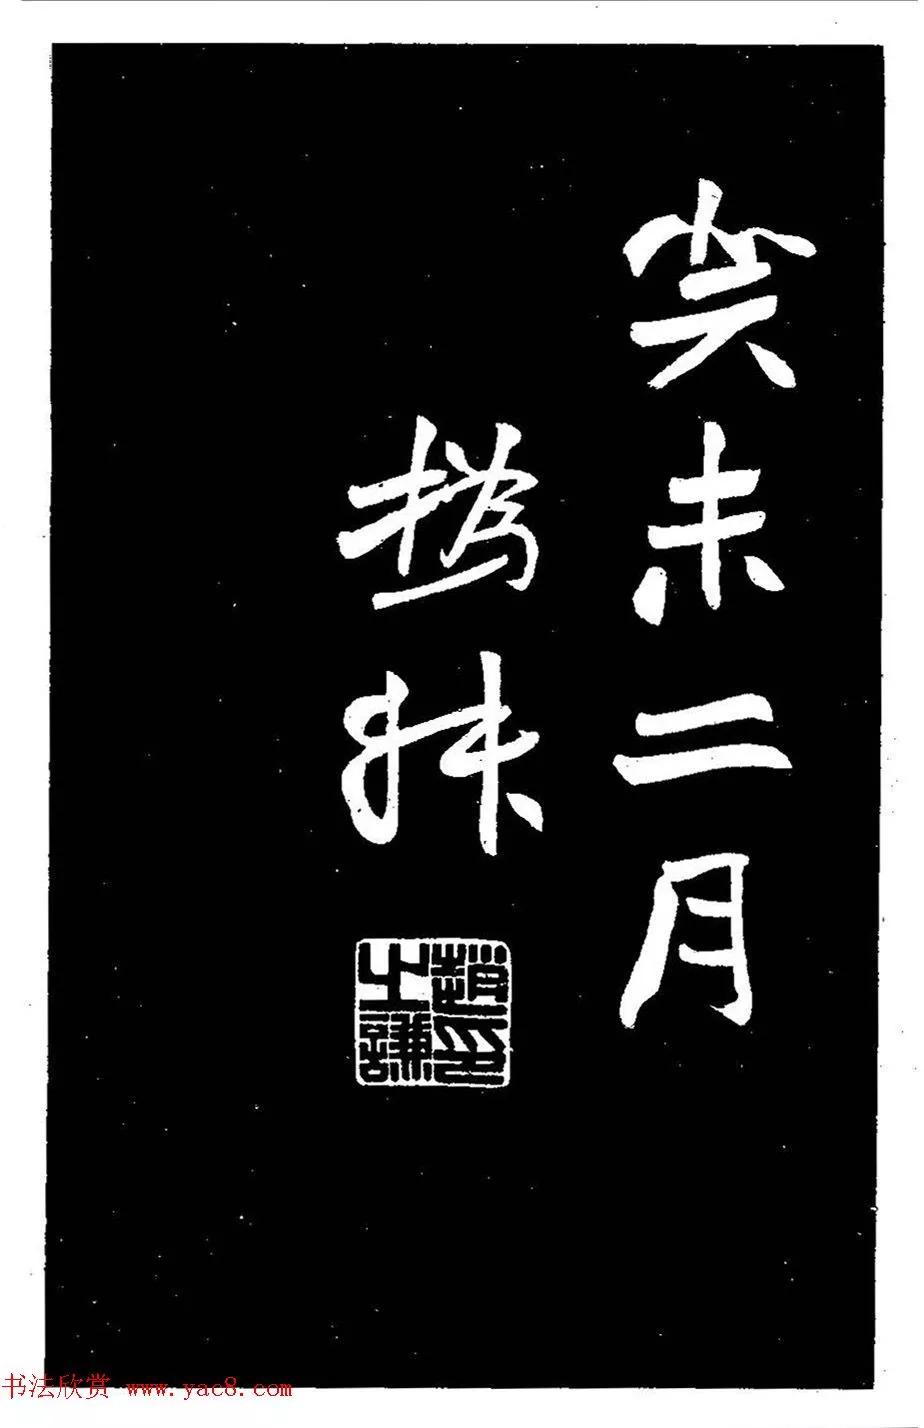 癸未二月
撝叔
趙印之謙
书法欣赏 www.yac8.com